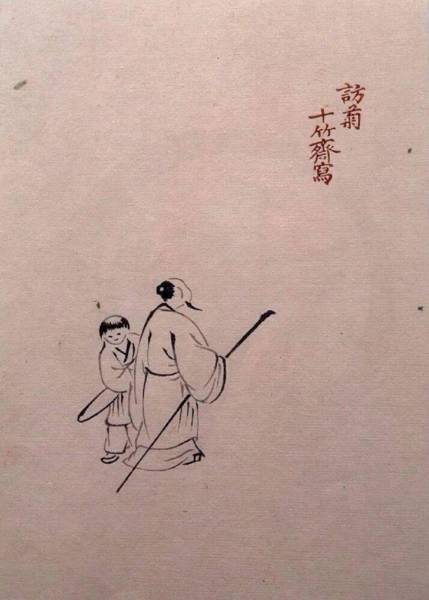 訪菊
十竹齋寫